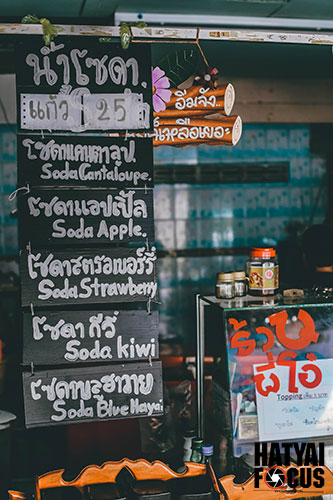 น้ำโซดา
แก้ว 25
อิ่มจัง
เหลือเยอะ
โซดาแคนตาลูป
Soda Cantaloupe.
โซดาแอปเปิ้ล
Soda Apple.
โซดาสตรอเบอร์รี่
Soda Strawberry
โซดา กีวี่
Soda kiwi
โซดาบลูฮาวาย
Soda Blue Hayai
ร้าน
พี่โอ๋
Topping
HATYAI
FOCUS